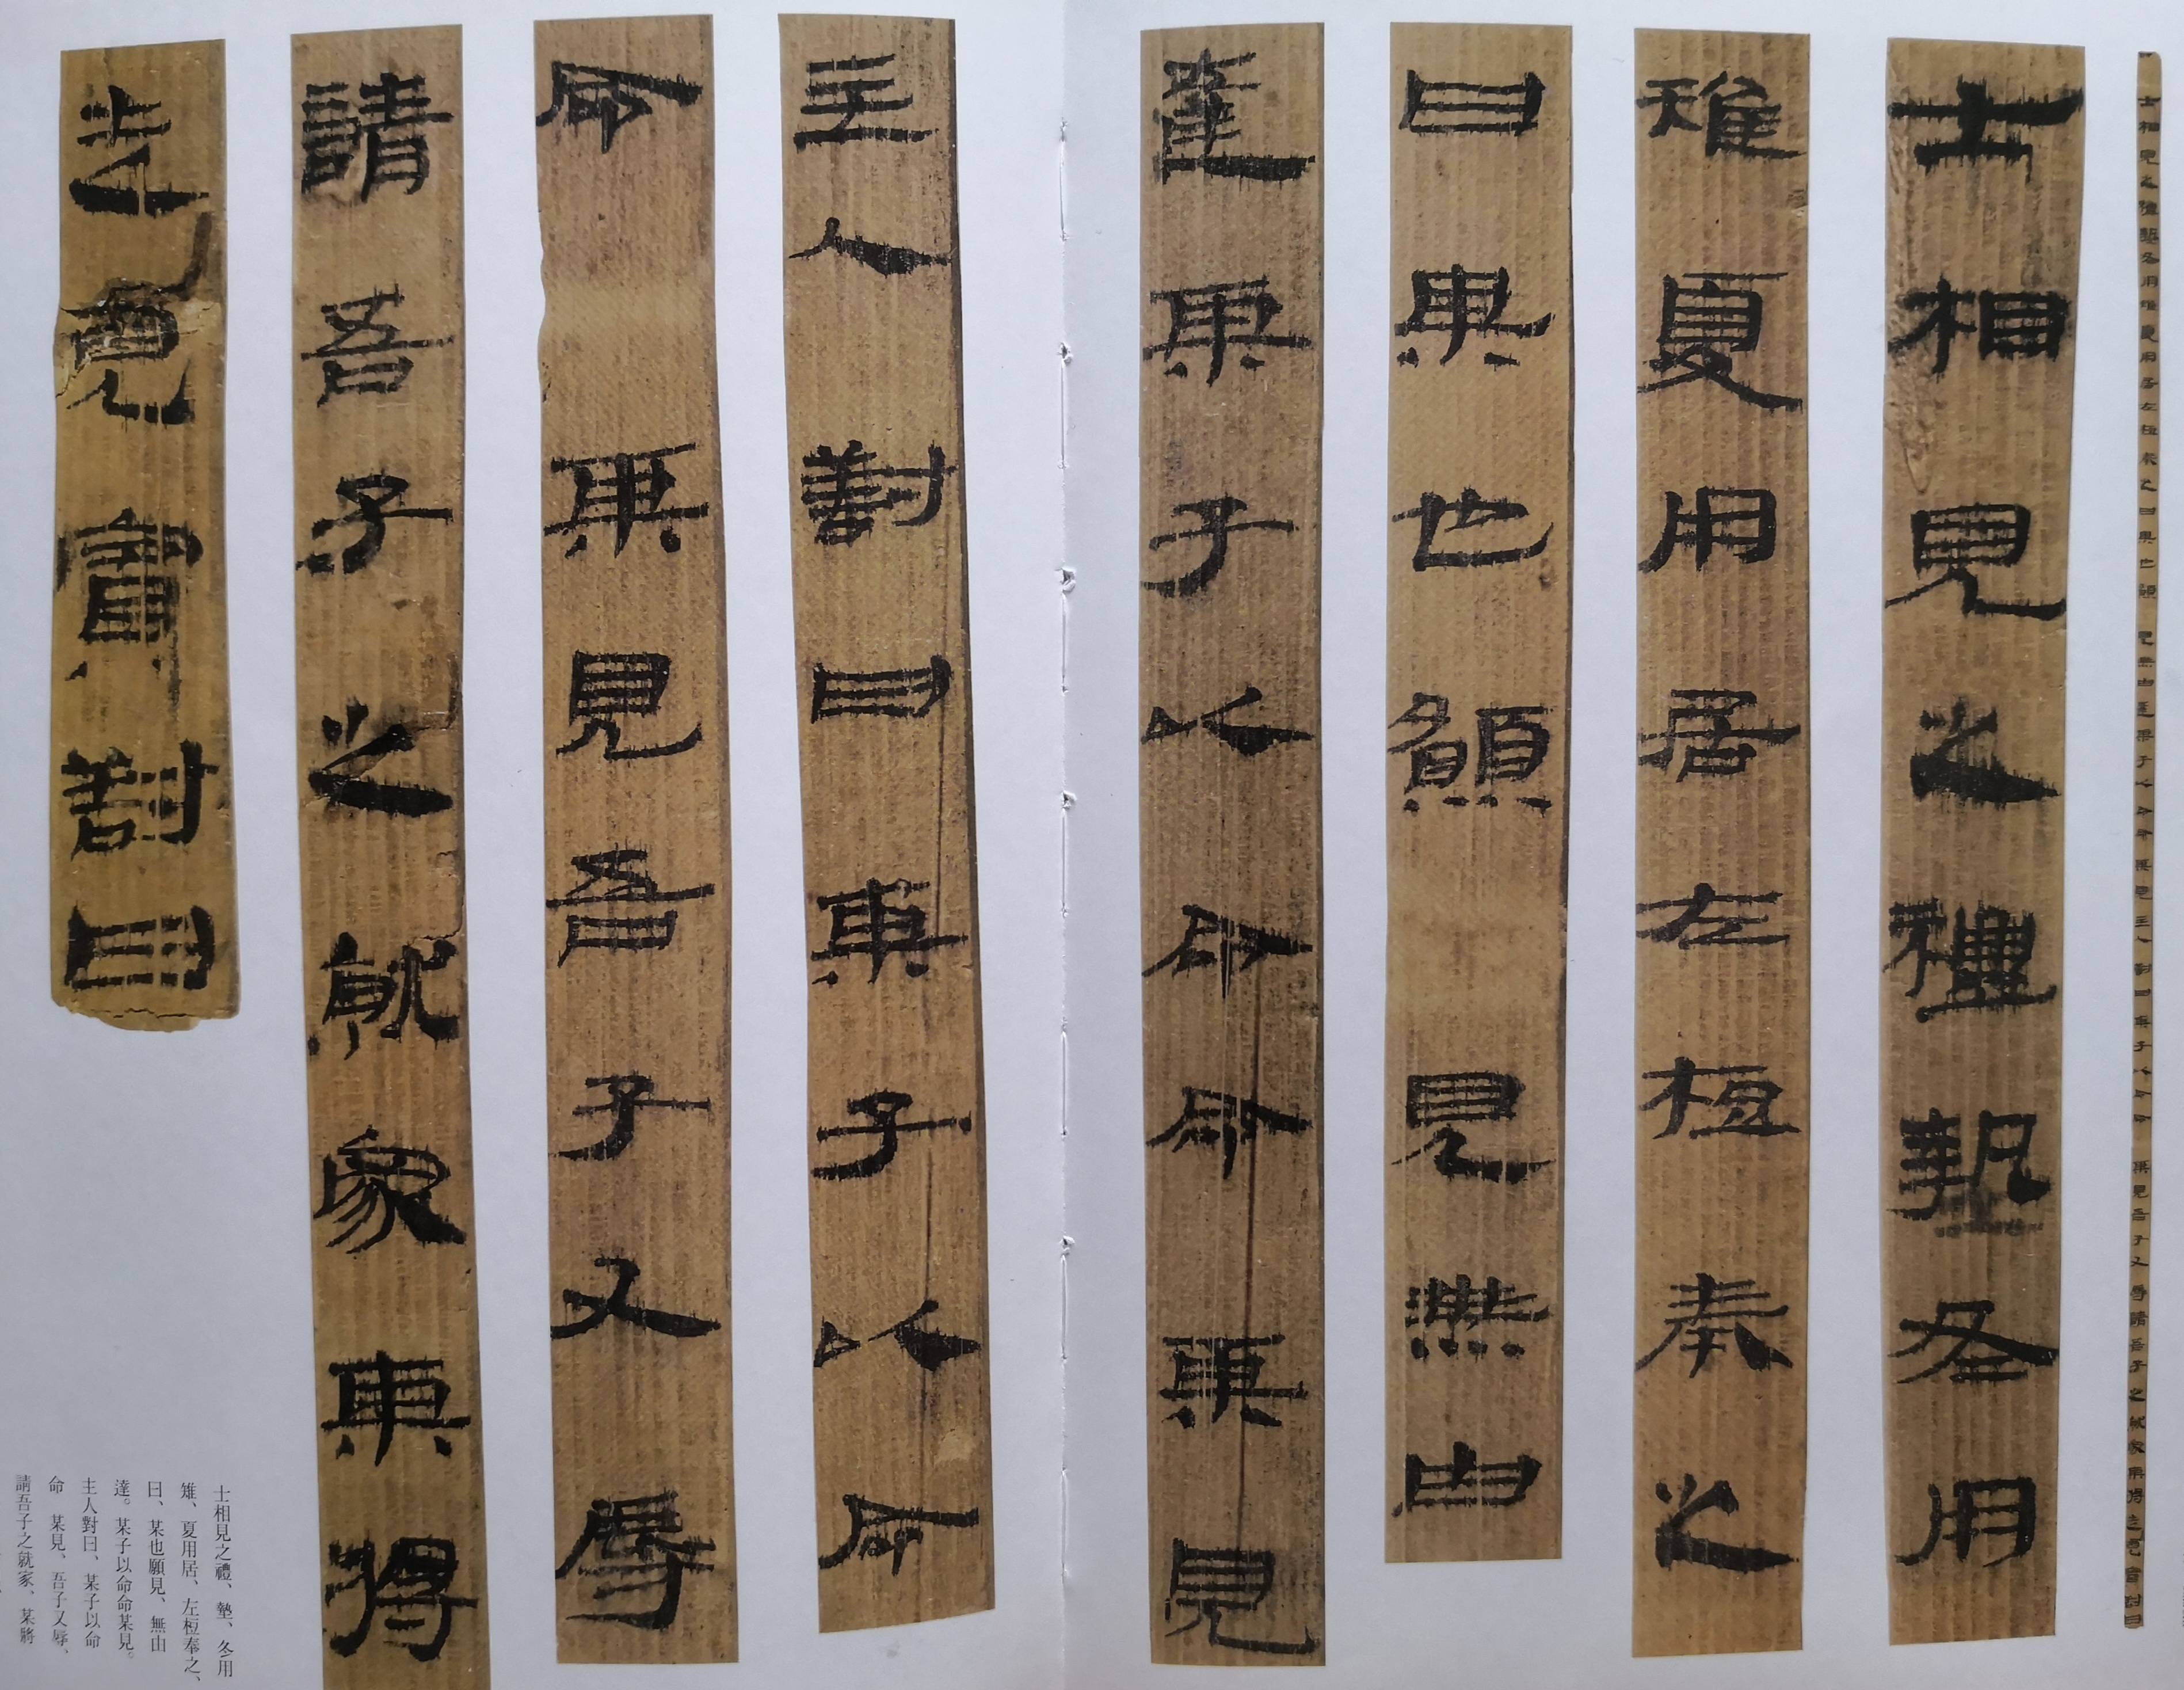 士相見之禮墊冬用
雉夏用居左桓奉之
曰某也願見無由
達某子以命命某見
主人對曰某子以命
命某見吾子又辱
請吾子之就家某將
走見賓對曰
士相見之禮、墊、冬用
雉、夏用居、左桓奉之、
曰、某也願見、無由
達。某子以命命某見。
主人對曰、某子以命
命 某見、吾子又辱、
請吾子之就家、某將